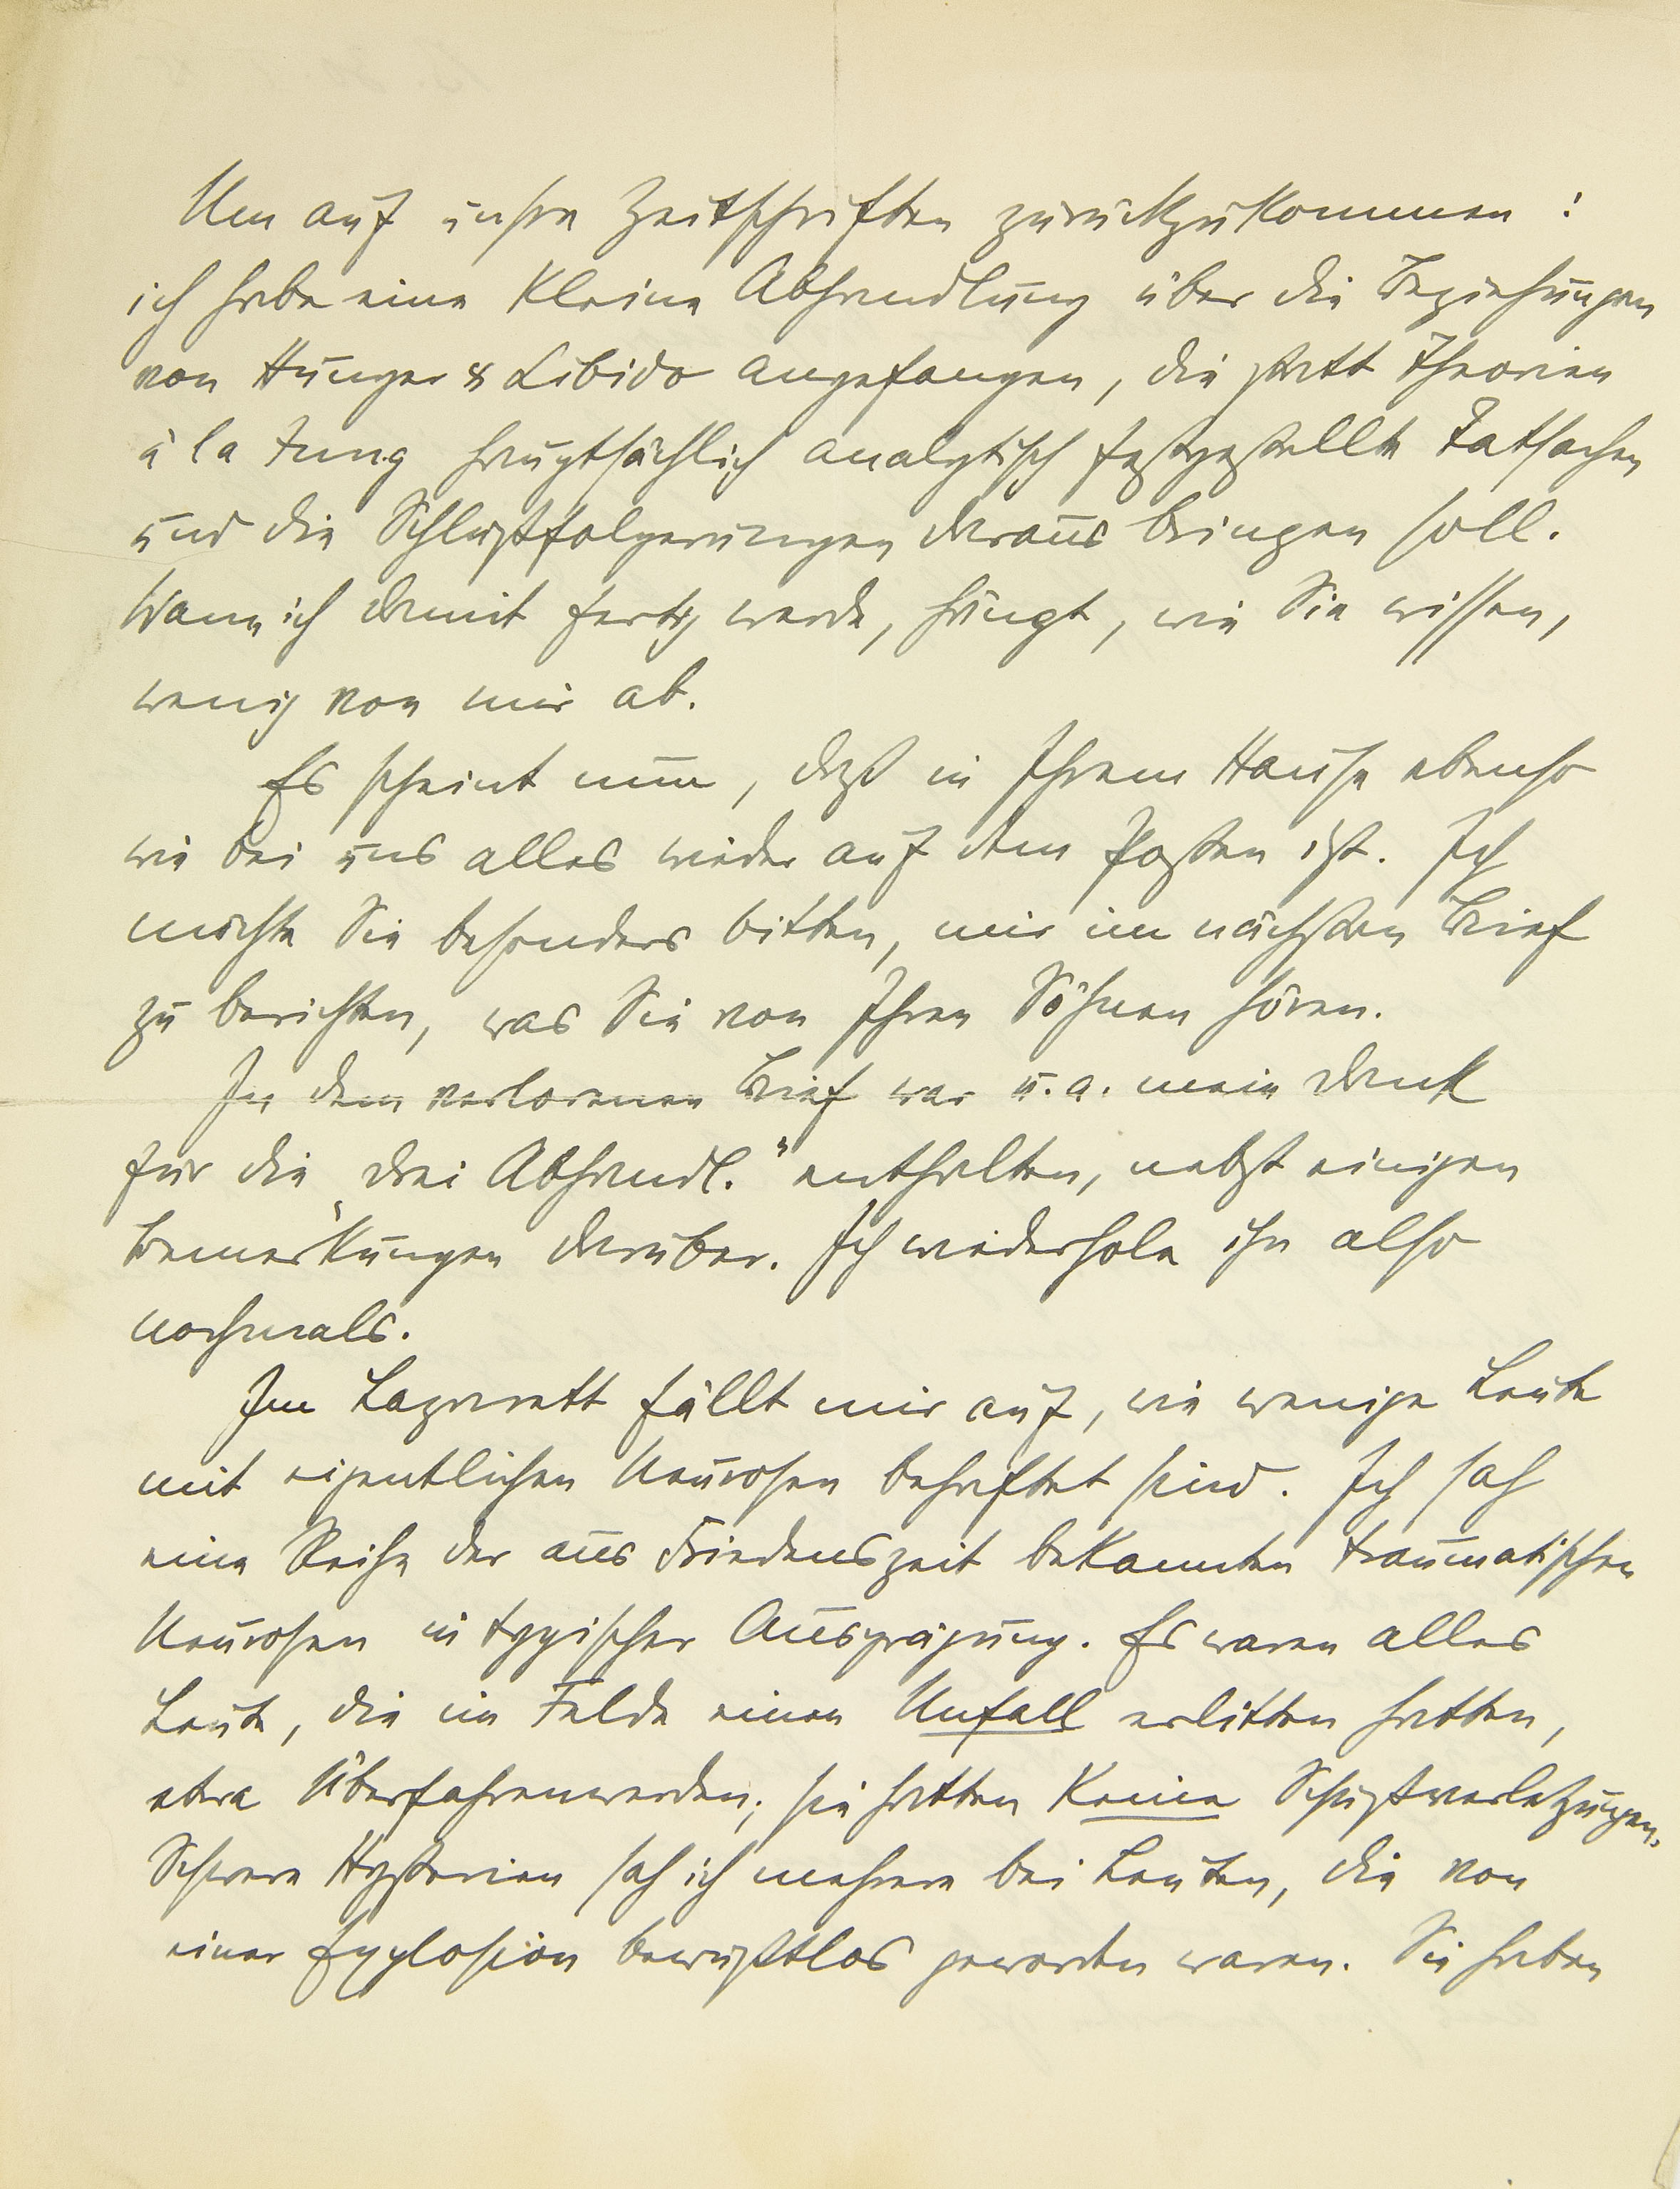 Um auf unsre Zeitschriften zurückzukommen:
ich habe eine kleine Abhandlung über die Beziehungen
von Hunger & Libido angefangen, die statt Theorien
à la Jung hauptsächlich analytisch festgestellte Tatsachen
und die Schlußfolgerungen daraus bringen soll.
Wann ich damit fertig werde, hängt, wie Sie wissen,
wenig von mir ab.
Es scheint nun, daß in Ihrem Hause ebenso
wie bei uns alles wieder auf dem Posten ist. Ich
möchte Sie besonders bitten, mir im nächsten Brief
zu berichten, was Sie von Ihren Söhnen hören.
In dem verlorenen Brief war u. a. mein Dank
für die „Drei Abhandl.“ enthalten, nebst einigen
Bemerkungen darüber. Ich wiederhole ihn also
nochmals.
Im Lazarett fällt mir auf, wie wenige Leute
mit eigentlichen Neurosen behaftet sind. Ich sah
eine Reihe der aus Friedenszeit bekannten traumatischen
Neurosen in typischer Ausprägung. Es waren alles
Leute, die im Felde einen Unfall erlitten hatten,
etwa Überfahrenwerden; sie hatten keine Schußverletzungen.
Schwere Hysterien sah ich mehrere bei Leuten, die von
einer Explosion bewußtlos geworden waren. Sie haben